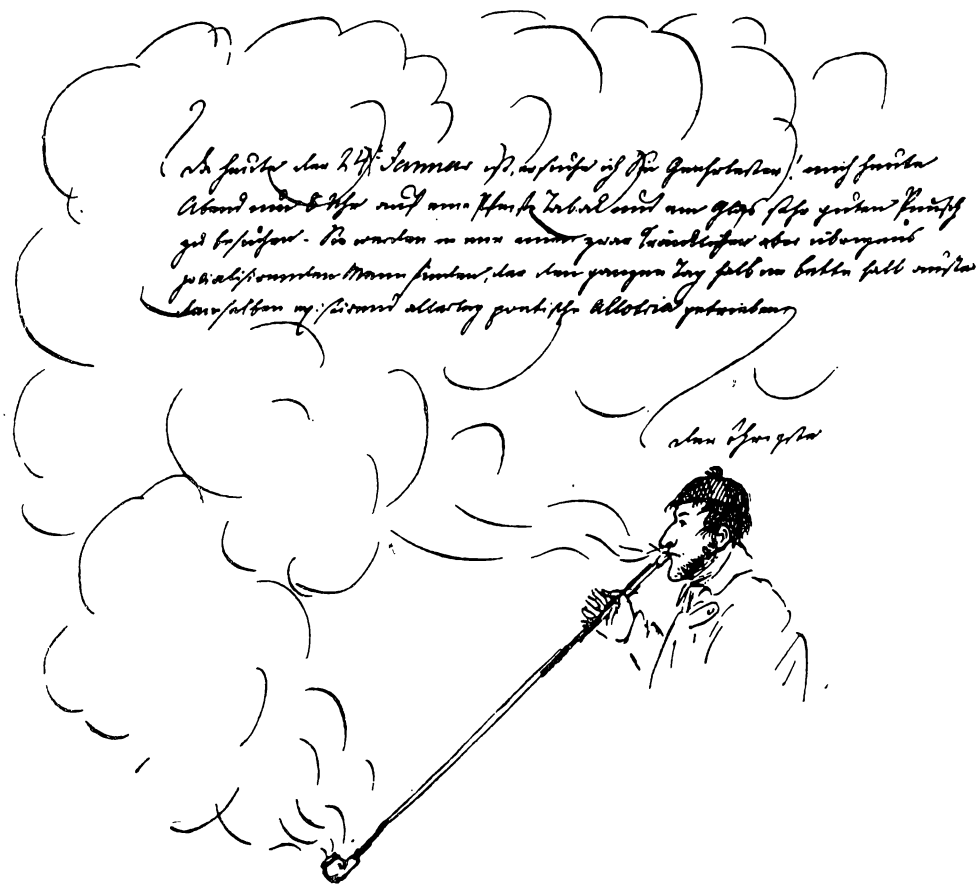 Da heute der 24t Januar ist, ersuche ich Sie Geehrtester! mich heute
Abend um 8 Uhr auf eine Pfeife Tabak und ein Glas sehr guten Punsch
zu besuchen. Sie werden in mir einen zwar kränklichen aber übrigens
Mann finden, der den ganzen Tag halb im bette halb außer
demselben allerley poetische Allotria getrieben
der Ihrigste